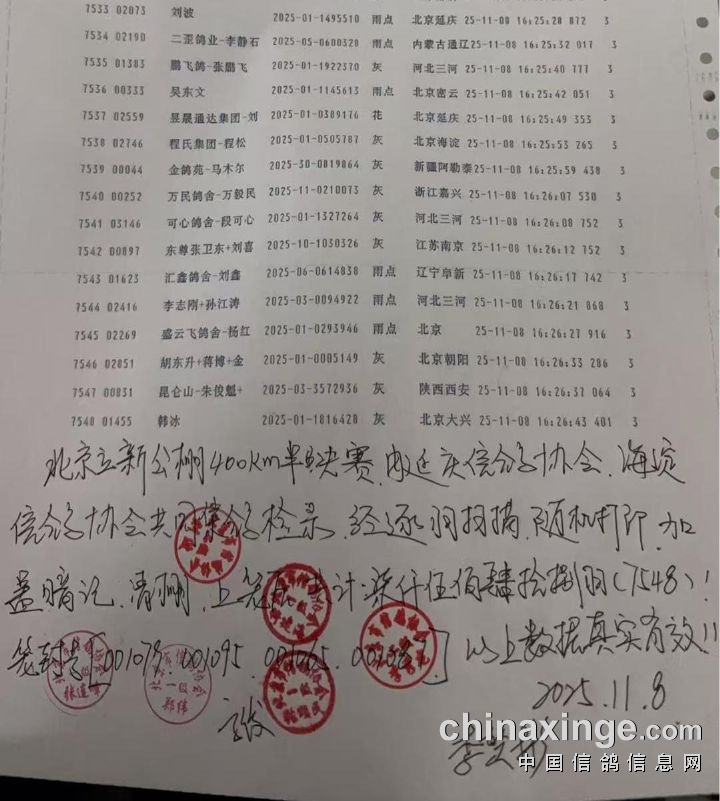 7533 02073 刘波 2025-01-1495510 雨点 北京延庆 25-11-08 16:25:28 872 3
7534 02190 二歪鸽业-李静石 2025-05-0600328 雨点 内蒙古通辽25-11-08 16:25:32 017 3
7535 01383 鹏飞鸽-张鹏飞 2025-01-1922370 灰 河北三河 25-11-08 16:25:40 777 3
7536 00333 吴东文 2025-01-1145613 雨点 北京密云 25-11-08 16:25:42 051 3
7537 02559 昱晟通达集团-刘 2025-01-0389176 花 北京延庆 25-11-08 16:25:49 353 3
7538 02746 程氏集团-程松 2025-01-0505787 灰 北京海淀 25-11-08 16:25:53 265 3
7539 00044 金鸽苑-马木尔 2025-30-0819864 灰 新疆阿勒泰25-11-08 16:25:59 438 3
7540 00252 万民鸽舍-万毅民 2025-11-0210073 灰 浙江嘉兴 25-11-08 16:26:07 530 3
7541 03146 可心鸽舍-段可心 2025-01-1327264 灰 河北三河 25-11-08 16:26:08 752 3
7542 00897 东尊张卫东+刘喜 2025-10-1030326 灰 江苏南京 25-11-08 16:26:12 752 3
7543 01623 汇鑫鸽舍-刘鑫 2025-06-0614838 雨点 辽宁阜新 25-11-08 16:26:17 742 3
7544 02416 李志刚+孙江涛 2025-03-0094922 雨点 河北三河 25-11-08 16:26:21 868 3
7545 02269 盛云飞鸽舍-杨红 2025-01-0293946 雨点 北京 25-11-08 16:26:27 916 3
7546 02851 胡东升+蒋博+金 2025-01-0005149 灰 北京朝阳 25-11-08 16:26:33 286 3
7547 00831 昆仑山-朱俊魁+ 2025-03-3572936 灰 陕西西安 25-11-08 16:26:37 064 3
7548 01455 韩冰 2025-01-1816428 灰 北京大兴 25-11-08 16:26:43 401 3
北京立新公棚400km半决赛,由延庆信鸽协会、海淀
信鸽协会共同集鸽检录,经逐羽扫描,随机打印,加
盖暗记,清棚,上笼 共计:柒仟伍佰肆拾捌羽(7548)!
笼封号[001079.001095. ] 以上数据真实有效!!
2025.11.8
chinaxinge.com
中国信鸽信息网